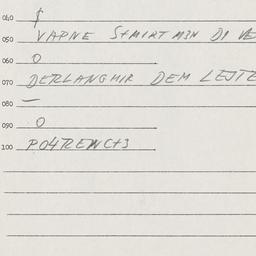 040 $
050 VAPNE SAMIRT M3N DI VE
060 0
070 DERLANGHIR DEM LEJTE
080 —
090 0
100